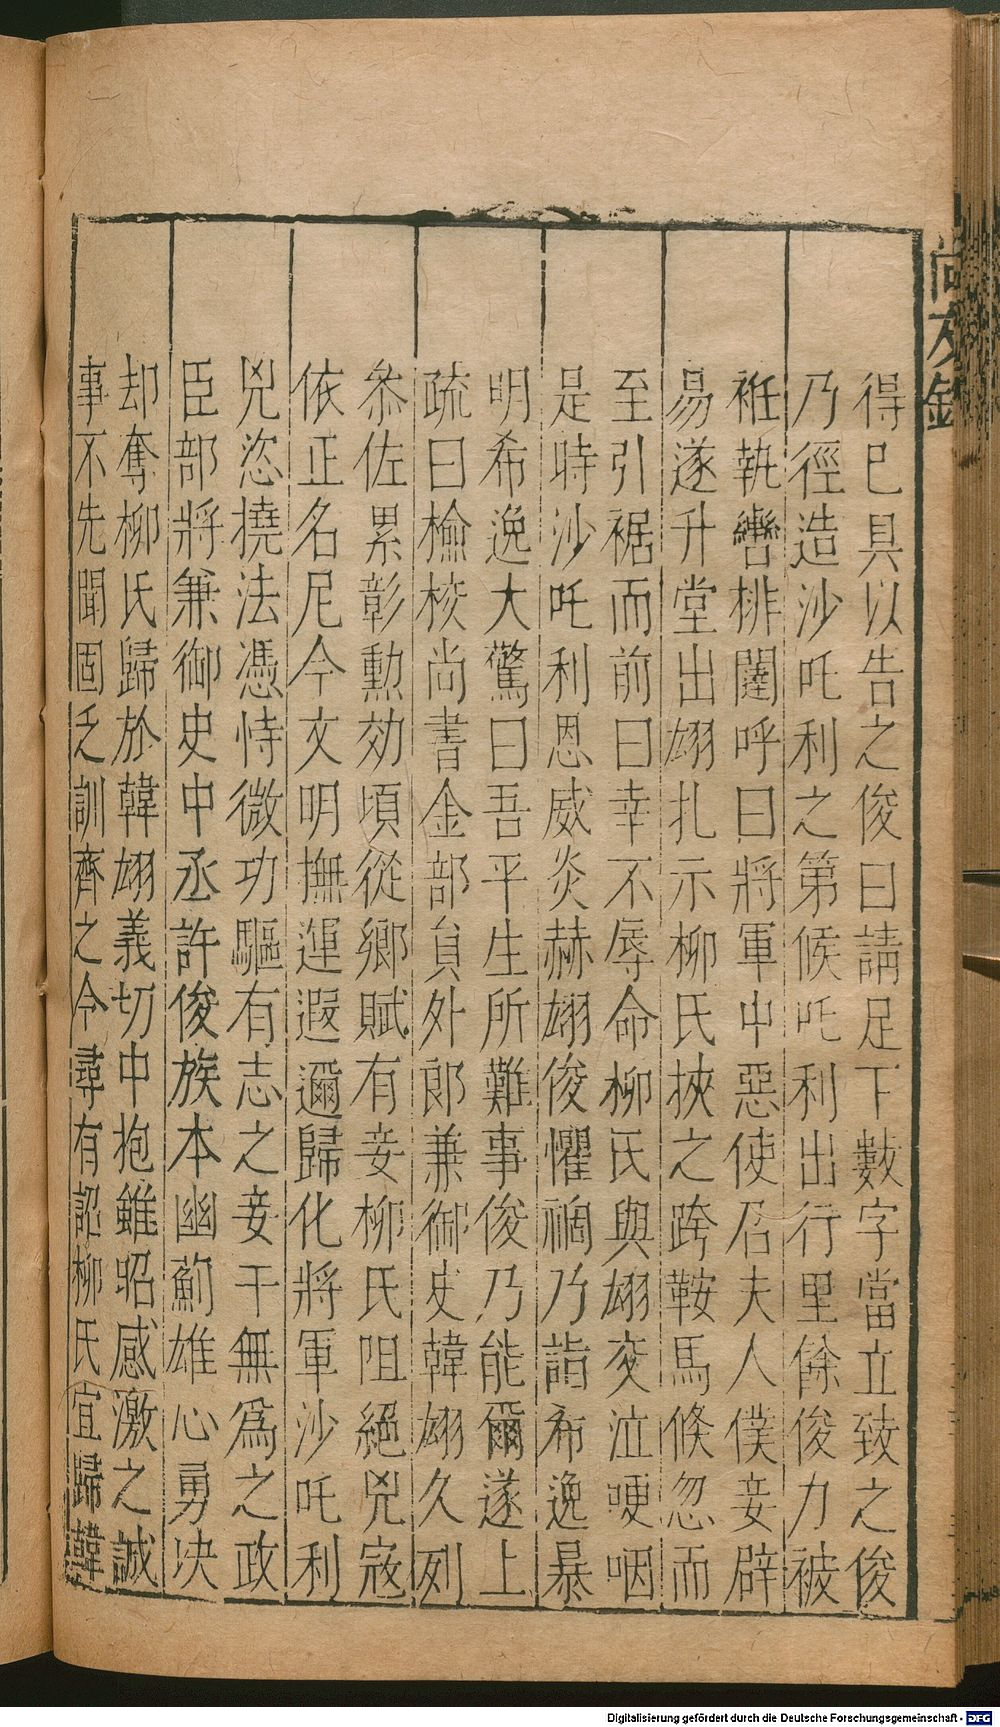 尚友錄
得巳具以告之俊曰請足下數字當立致之俊
乃徑造沙吒利之第候吒利出行里餘俊力被
袵執轡排闥呼曰將軍中惡使召夫人僕妾辟
易遂升堂出翃扎示柳氏挾之跨鞍馬倏忽而
至引裾而前曰幸不辱命柳氏與翃交泣哽咽
是時沙吒利恩威炎赫翃俊懼禍乃詣希逸暴
明希逸大驚曰吾平生所難事俊乃能爾遂上
疏曰檢校尚書金部負外郎兼御史韓翃久列
叅佐累彰勲効頃從鄉賦有妾柳氏阻絕兇寇
依正名尼今文明撫運遐邇歸化將軍沙吒利
兇恣撓法憑恃微功驅有志之妾干無爲之政
臣部將兼御史中丞許俊族本幽薊雄心勇决
却奪柳氏歸於韓翃義切中抱雖昭感激之誠
事不先聞固乏訓齊之令尋有詔柳氏宜歸韓
Digitalisierung gefördert durch die Deutsche Forschungsgemeinschaft - DFG